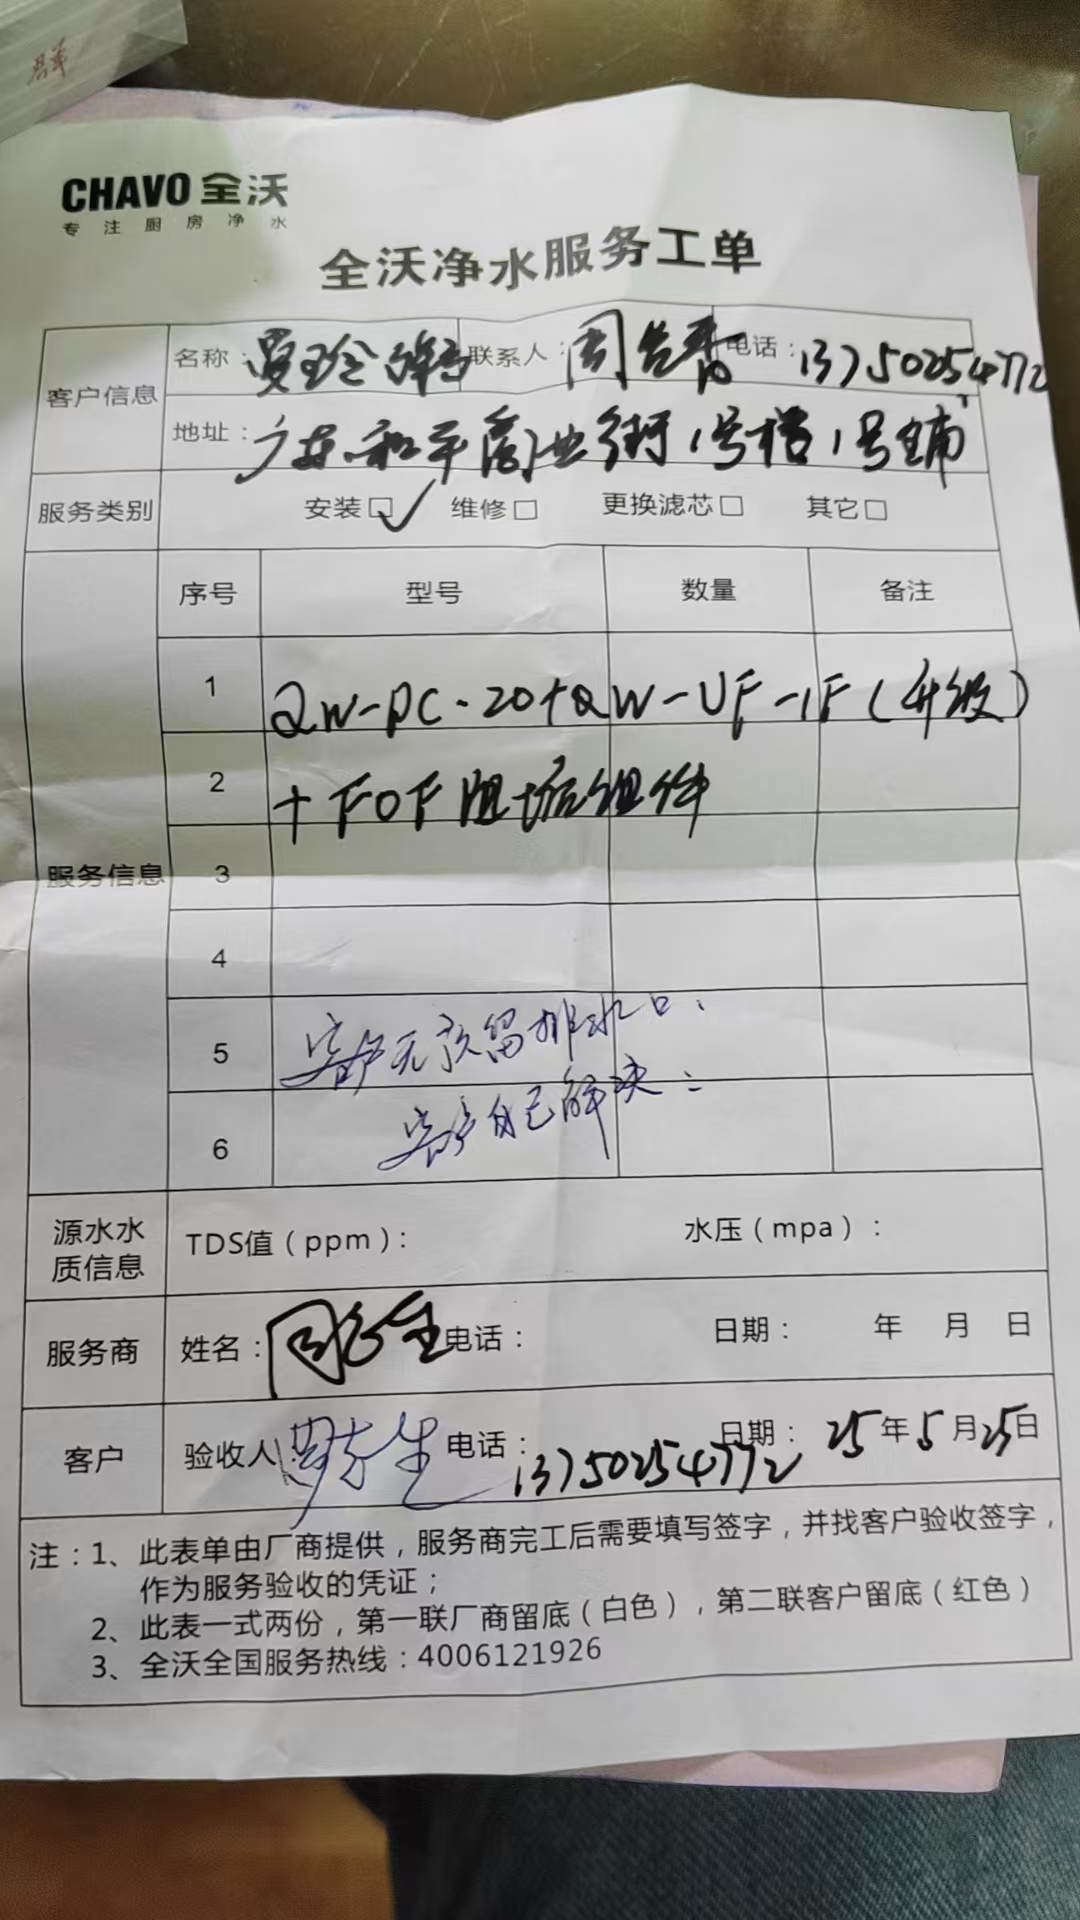 CHAVO 全沃
专注厨房净水
全沃净水服务工单
客户信息
名称： 联系人：周 电话：13750254772
地址：广东和平商业街1号楼1号铺
服务类别 安装□✓ 维修□ 更换滤芯□ 其它□
服务信息
序号 型号 数量 备注
1 QW-PC-20+QW-UF-1F(升级)
2 +FOF阻垢组件
3
4
5 客户无预留排水口.
6 客户自己解决.
源水水质信息 TDS值（ppm）： 水压（mpa）：
服务商 姓名： 电话： 日期： 年 月 日
客户 验收人： 电话：13750254772 日期：25年5月25日
注：1、此表单由厂商提供，服务商完工后需要填写签字，并找客户验收签字，
作为服务验收的凭证；
2、此表一式两份，第一联厂商留底（白色），第二联客户留底（红色）
3、全沃全国服务热线：4006121926